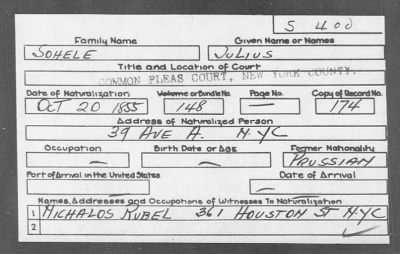 S 400
Family Name Given Name or Names
SOHELE JULIUS
Title and Location of Court
COMMON PLEAS COURT, NEW YORK COUNTY.
Date of Naturalization Volume or Bundle No. Page No. Copy of Record No.
OCT 20 1855 148 — 174
Address of Naturalized Person
39 AVE A. N.Y.C
Occupation Birth Date or Age Former Nationality
— — PRUSSIAN
Port of Arrival in the United States Date of Arrival
— —
Names, Addresses and Occupations of Witnesses To Naturalization
1 MICHALOS RUBEL 361 HOUSTON ST N.Y.C
2